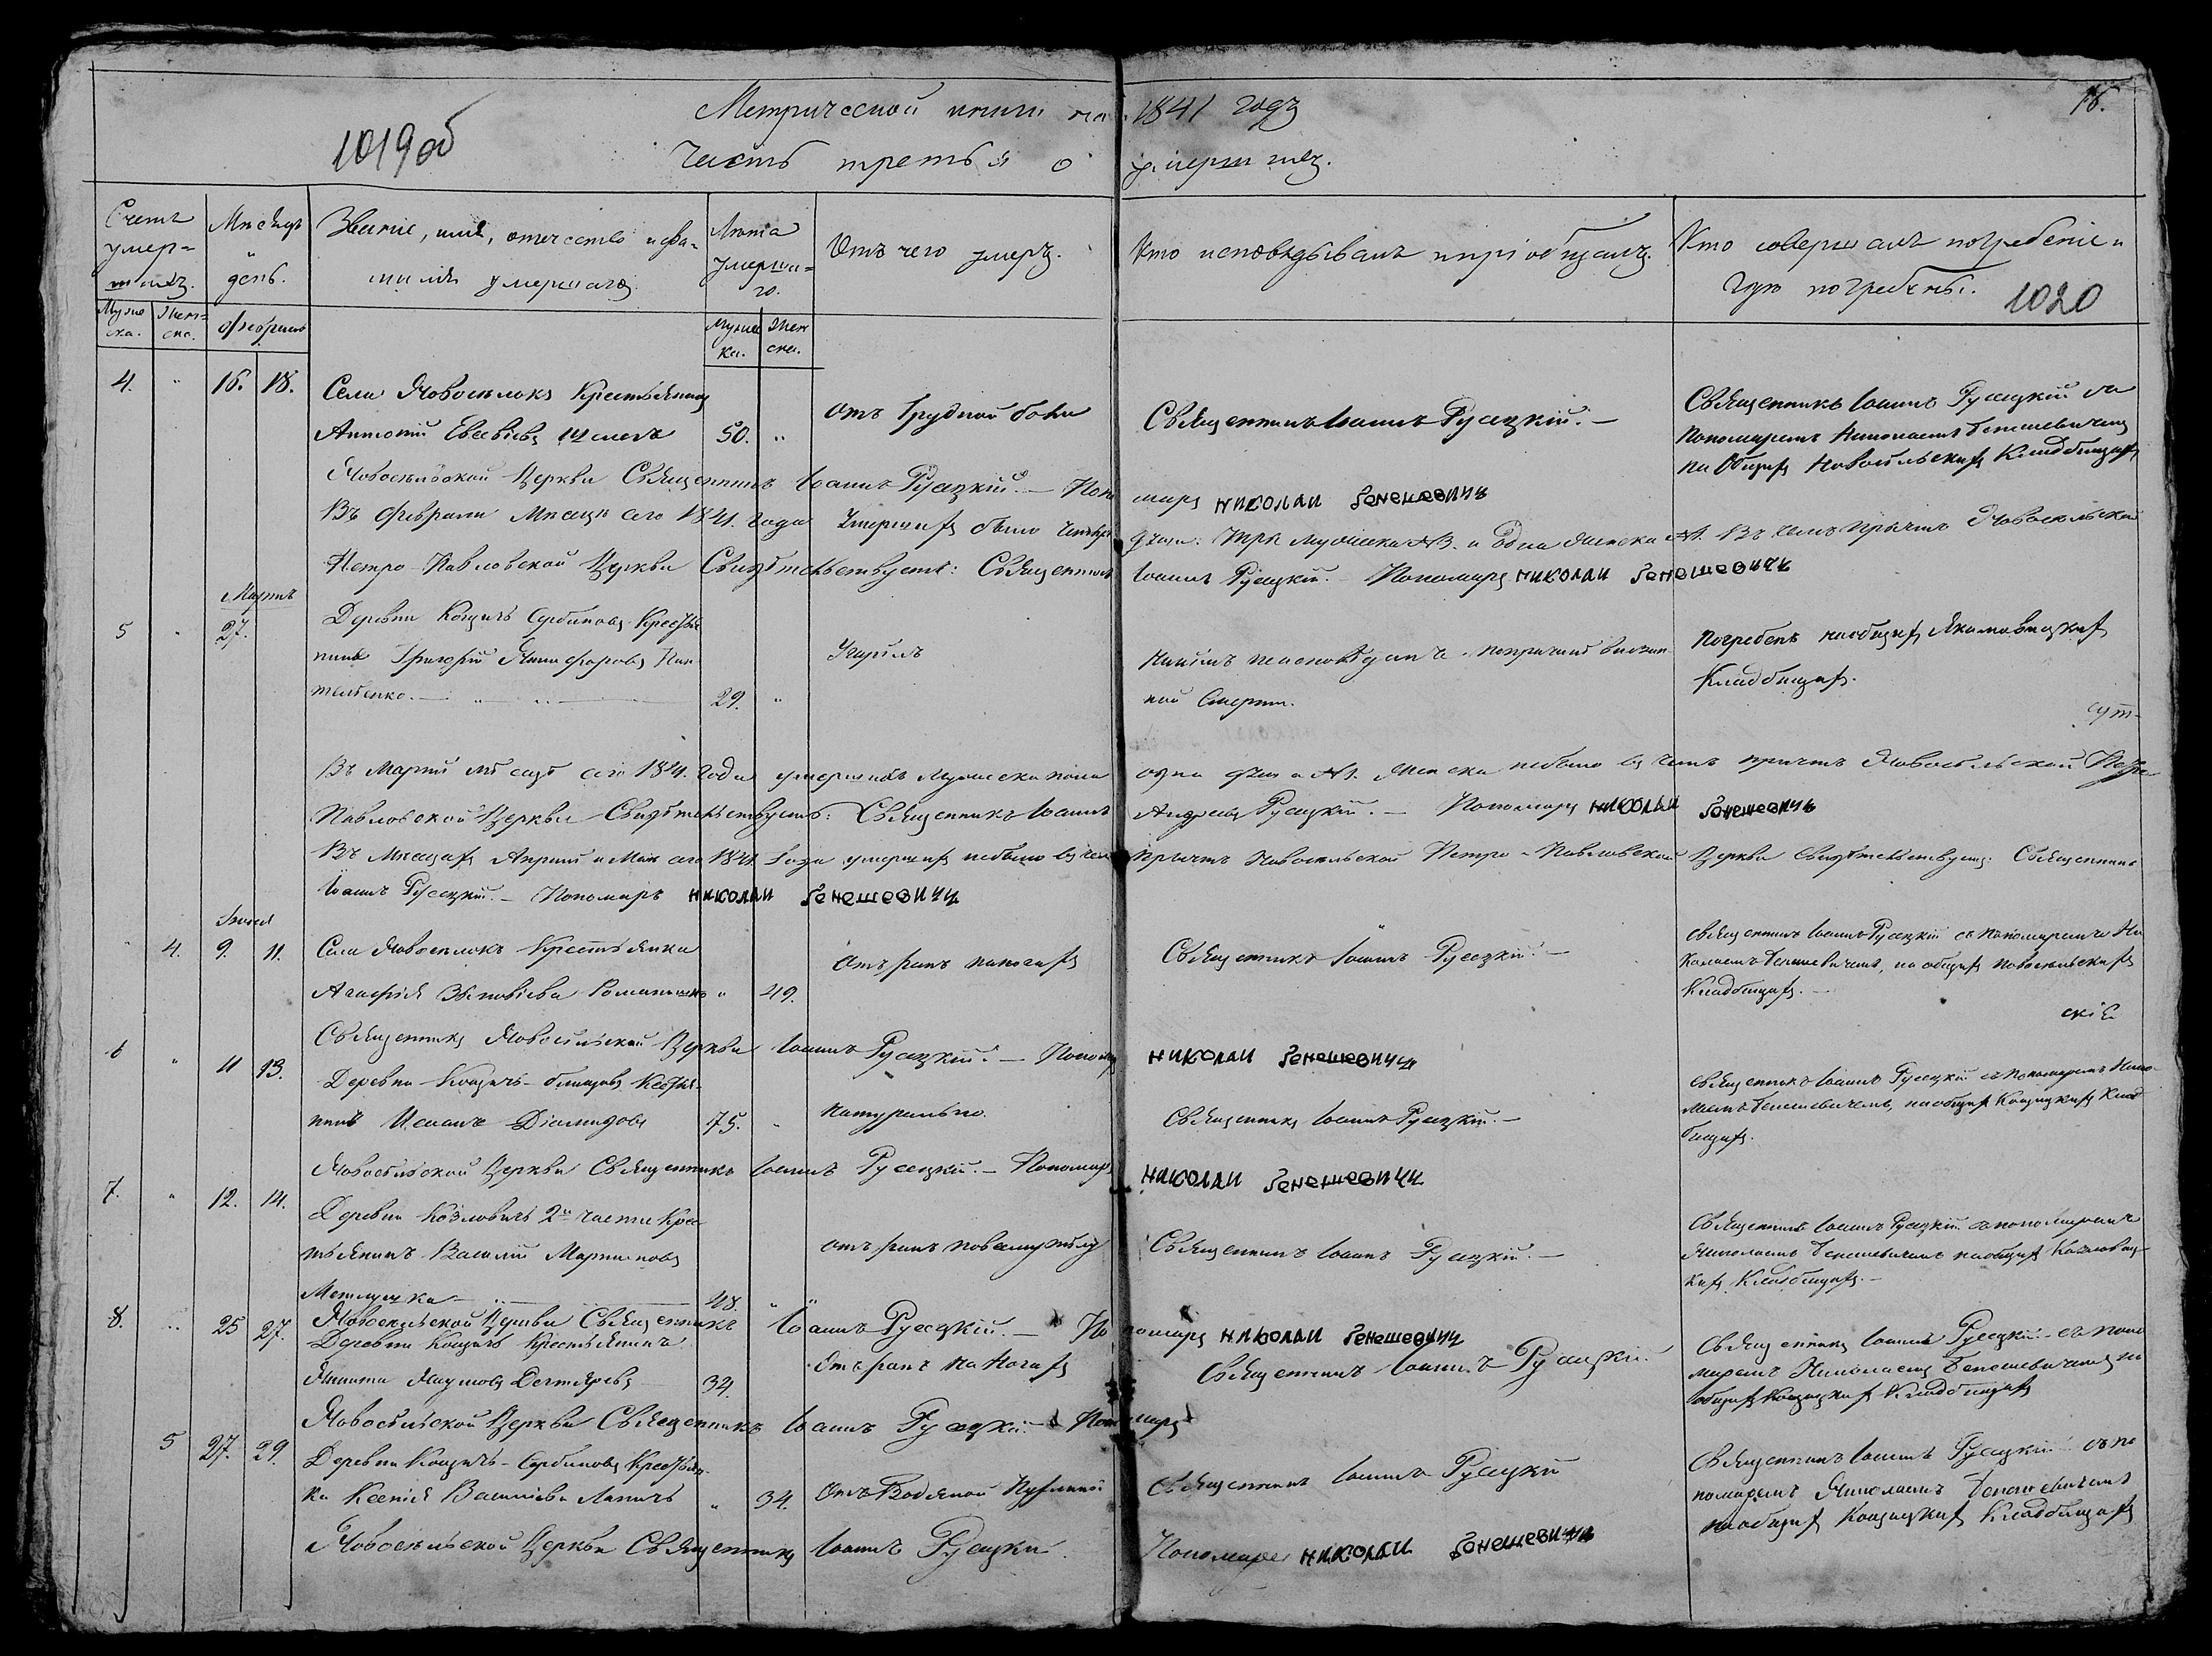 Метрической книги на 1841 годъ
18.
1019об
Часть третья о умершихъ.
Счетъ умер=шихъ.
Мѣсяцъ и день.
Званіе, имя, отчество и фа-
милія умершаго.
Лѣта умерша=го.
Отъ чего умеръ.
Кто исповѣдывалъ и пріобщалъ.
Кто совершалъ погребеніе и
гдѣ погребены.
1020
Муже ска.
Жен= ска.
Февраль
Мужес ка.
Жен ска.
4. " 16. 18. Села Новосѣлокъ Крестьянинъ
Антоній Евсевіевъ 50. "
отъ Грудной боли
Священникъ Іоаннъ Русецкій. —
Священникъ Іоаннъ Русецкій съ
Пономаремъ Николаемъ Бенешевичемъ
на Общихъ Новосѣльскихъ Кладбищахъ
Новосѣльской Церкви Священникъ Іоаннъ Русецкій. — Понамарь Николай Бенешевичъ
Въ Февралѣ Мѣсяцѣ сего 1841. года Умершихъ было четыре души: Три мужеска №3. и Одна женска №1. Въ чемъ Причтъ Новосельской
Петро-Павловской Церкви Свидѣтельствуетъ: Священникъ Іоаннъ Русецкій. Пономарь Николай Бенешевичъ
Мартъ
5 " 27. Деревни Кощичъ Сербиновъ Крестья
нинъ Григорій Никифоровъ Пан
теленко. — 29. "
Угорѣлъ
Никѣмъ неисповѣданъ по причинѣ внезап
ной Смерти.
Погребенъ наобщихъ Якимовицкихъ
Кладбищахъ.
сут-
Въ Мартѣ мѣсяцѣ сего 1841. года умершихъ Мужеска пола одна душа №1. Женска небыло въ чемъ причтъ Новосѣльской Петро
Павловской Церкви Свидѣтельствуетъ: Священникъ Іоаннъ Андреевъ Русецкій. — Пономарь Николай Бенешевичъ
Въ Мѣсяцахъ Апрѣлѣ и Маѣ сего 1841 Года умершихъ небыло въ чемъ Причтъ Новосельской Петро-Павловской Церкви свидѣтельствуетъ: Священникъ
Іоаннъ Русецкій. — Пономарь Николай Бенешевичъ
Іюнь
" 4. 9. 11. Села Новоселокъ Крестьянка
Агафія Зѣновіева " 49.
Отъ ранъ наногахъ
Священникъ Іоаннъ Русецкій. —
Священникъ Іоаннъ Русецкій съ Пономаремъ Ни
колаемъ Бенешевичемъ, на общихъ Новосельскихъ
Кладбищахъ. —
скіе
Священникъ Новосѣльской Церкви Іоаннъ Русецкій. — Пономарь Николай Бенешевичъ
6 " 11 13. Деревни Кощичъ- Крестья-
нинъ Діомидовъ 75. "
натурально.
Священникъ Іоаннъ Русецкій. —
Священникъ Іоаннъ Русецкій съ Пономаремъ Нико-
лаемъ Бенешевичемъ, наобщихъ Кощицкихъ Клад
бищахъ.
Новосѣльской Церкви Священникъ Іоаннъ Русецкій. — Пономарь Николай Бенешевичъ
7. " 12. 14. Деревни Козловичъ 2й части Крес
тьянинъ Василій Мартиновъ
48. "
отъ ранъ повсему тѣлу
Священникъ Іоаннъ Русецкій. —
Священникъ Іоаннъ Русецкій съ пономаремъ
Николаемъ Бенешевичемъ наобщихъ Козловиц-
кихъ Кладбищахъ. —
Новосельской Церкви Священникъ Іоаннъ Русецкій. — Пономарь Николай Бенешевичъ
8. " 25 27. Деревни Кощичъ Крестьянинъ
Никита Наумовъ Дегтяревъ 34.
Отъ ранъ на Ногахъ
Священникъ Іоаннъ Русецкій
Священникъ Іоаннъ Русецкій — съ поно
маремъ Николаемъ Бенешевичемъ на
общихъ Кощицкихъ Кладбищахъ
Новосѣльской Церкви Священникъ Іоаннъ Русецкій — Пономарь
5 27. 29. Деревни Кощичъ-Сербиновъ Крестьян-
ка Ксенія Василіева Лапичъ " 34.
Отъ Водяной Пухлины
Священникъ Іоаннъ Русецкій
Священникъ Іоаннъ Русецкій съ по
номаремъ Николаемъ Бенешевичемъ
наобщихъ Кощицкихъ Кладбищахъ
Новосѣльской Церкви Священникъ Іоаннъ Русецкій. Пономарь Николай Бенешевичъ